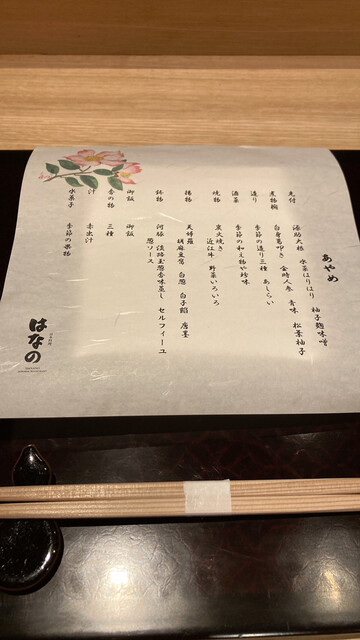 あやめ
先付 源助大根 水菜はりはり 柚子麹味噌
煮物椀 白身葛叩き 金時人参 青味 松葉柚子
造り 季節の造り三種 あしらい
酒菜 季節の和え物や珍味
焼物 炭火焼き 近江牛 野菜いろいろ
揚物 天婦羅 胡麻豆腐 白葱 白子餡 唐墨
鉢物 河豚 淡路玉葱香味蒸し セルフィーユ
葱ソース
御飯 御飯
香の物 三種
汁 赤出汁
水菓子 季節の果物
はなの